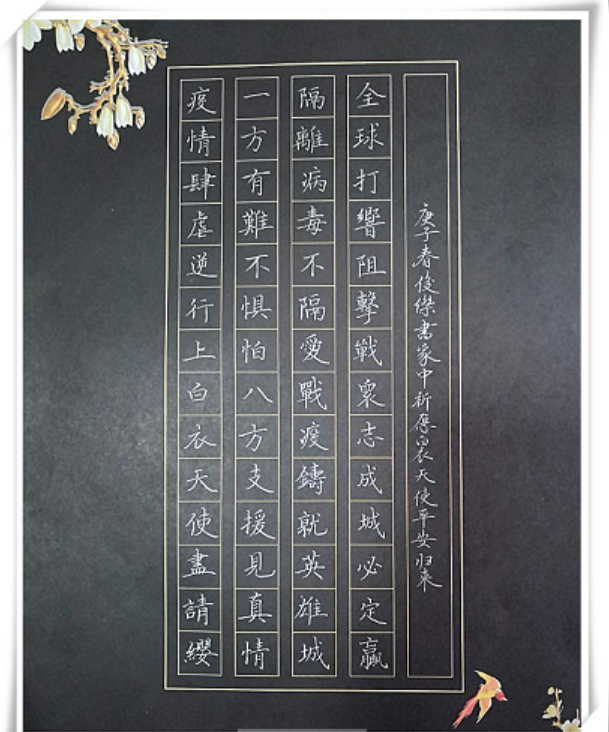 疫情肆虐逆行上白衣天使盡請纓
一方有難不懼怕八方支援見真情
隔離病毒不隔愛戰疫鑄就英雄城
全球打響阻擊戦衆志成城必定贏
庚子春俊傑書家中祈愿白衣天使平安归来